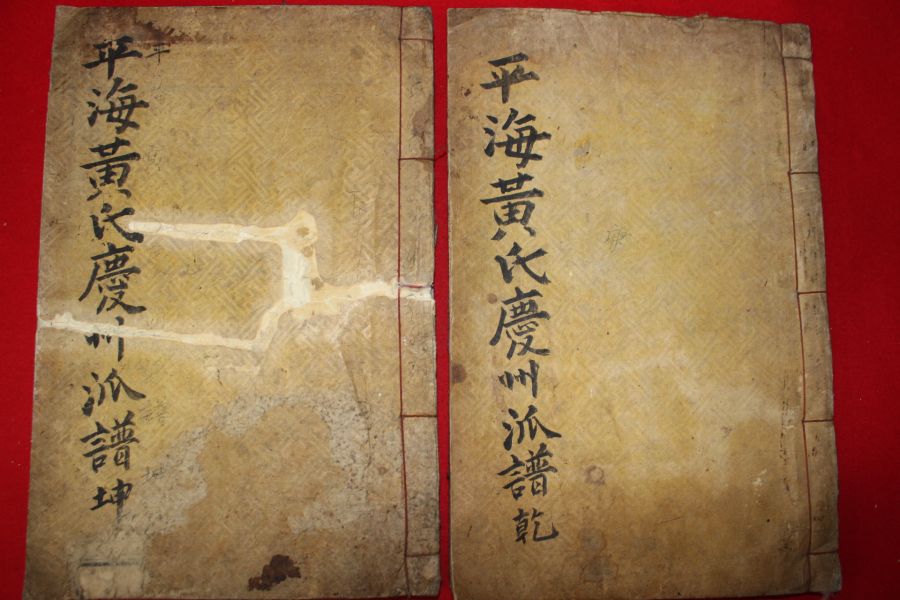 平海黃氏慶州派譜乾
平海黃氏慶州派譜坤
平